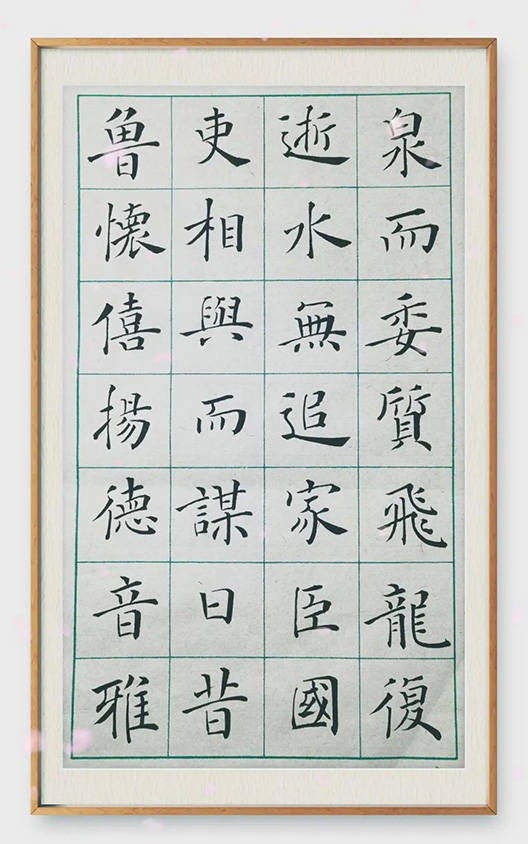 泉而委質飛龍復
逝水無追家臣國
吏相與而謀曰昔
魯懷僖揚德音雅